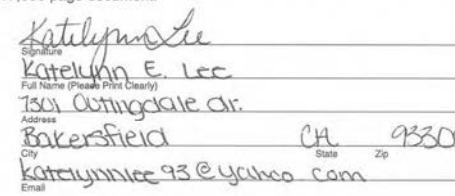 Katelynn Lee
Signature
Katelynn E. Lee
Full Name (Please Print Clearly)
7301 Outingdale dr.
Address
Bakersfield CA 9330
City State Zip
katelynnlee93@yahoo.com
Email